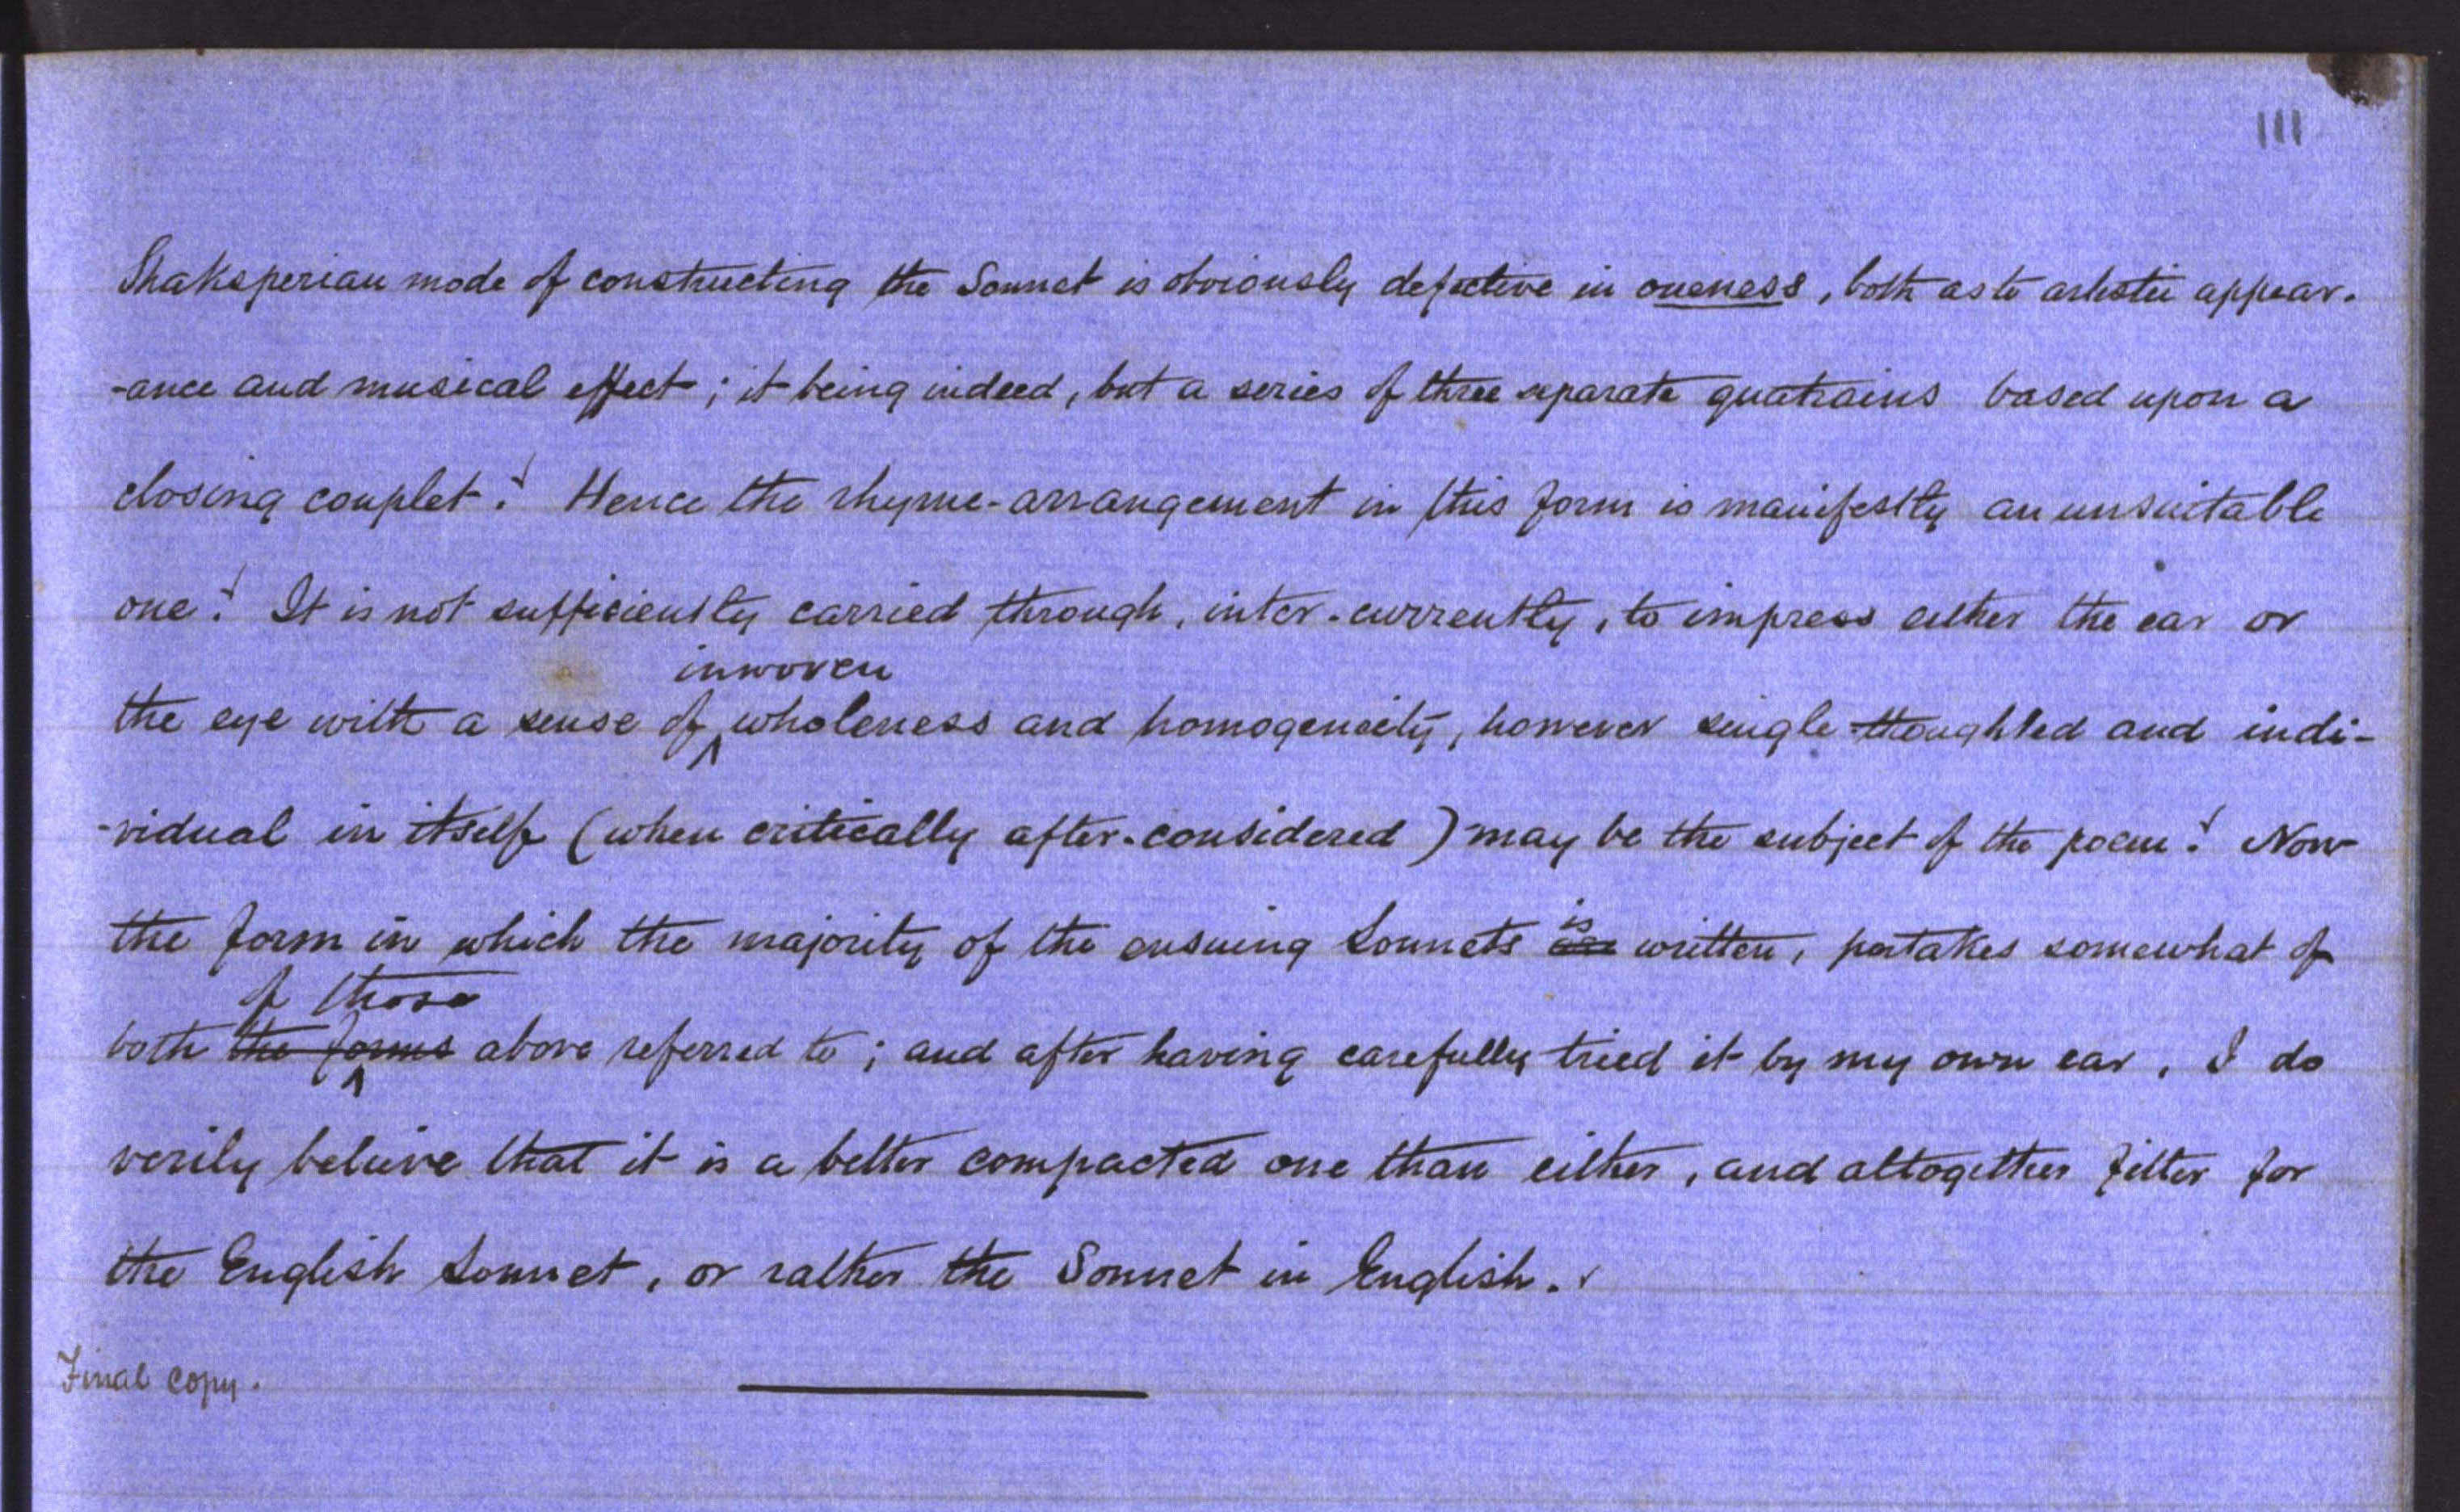 111
Shaksperian mode of constructing the Sonnet is obviously defective in oneness, both as to artistic appear-
-ance and musical effect; it being indeed, but a series of three separate quatrains based upon a
closing couplet. Hence the rhyme-arrangement in this form is manifestly an unsuitable
one. It is not sufficiently carried through, inter-currently, to impress either the ear or
inwoven
the eye with a sense of ^ wholeness and homogeneity, however single-thoughted and indi-
-vidual in itself (when critically after-considered) may be the subject of the poem. Now
is
the form in which the majority of the ensuing Sonnets are written, partakes somewhat of
of those
both the forms ^ above referred to; and after having carefully tried it by my own ear, I do
verily believe that it is a better compacted one than either, and altogether fitter for
the English Sonnet, or rather the Sonnet in English.
Final copy.